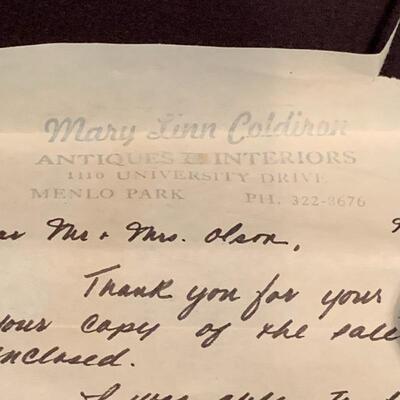 Mary Linn Coldiron
ANTIQUES & INTERIORS
1110 UNIVERSITY DRIVE
MENLO PARK PH. 322-8676
Mr + Mrs. Olson,
Thank you for your
your copy of the sale
enclosed.
I was able to